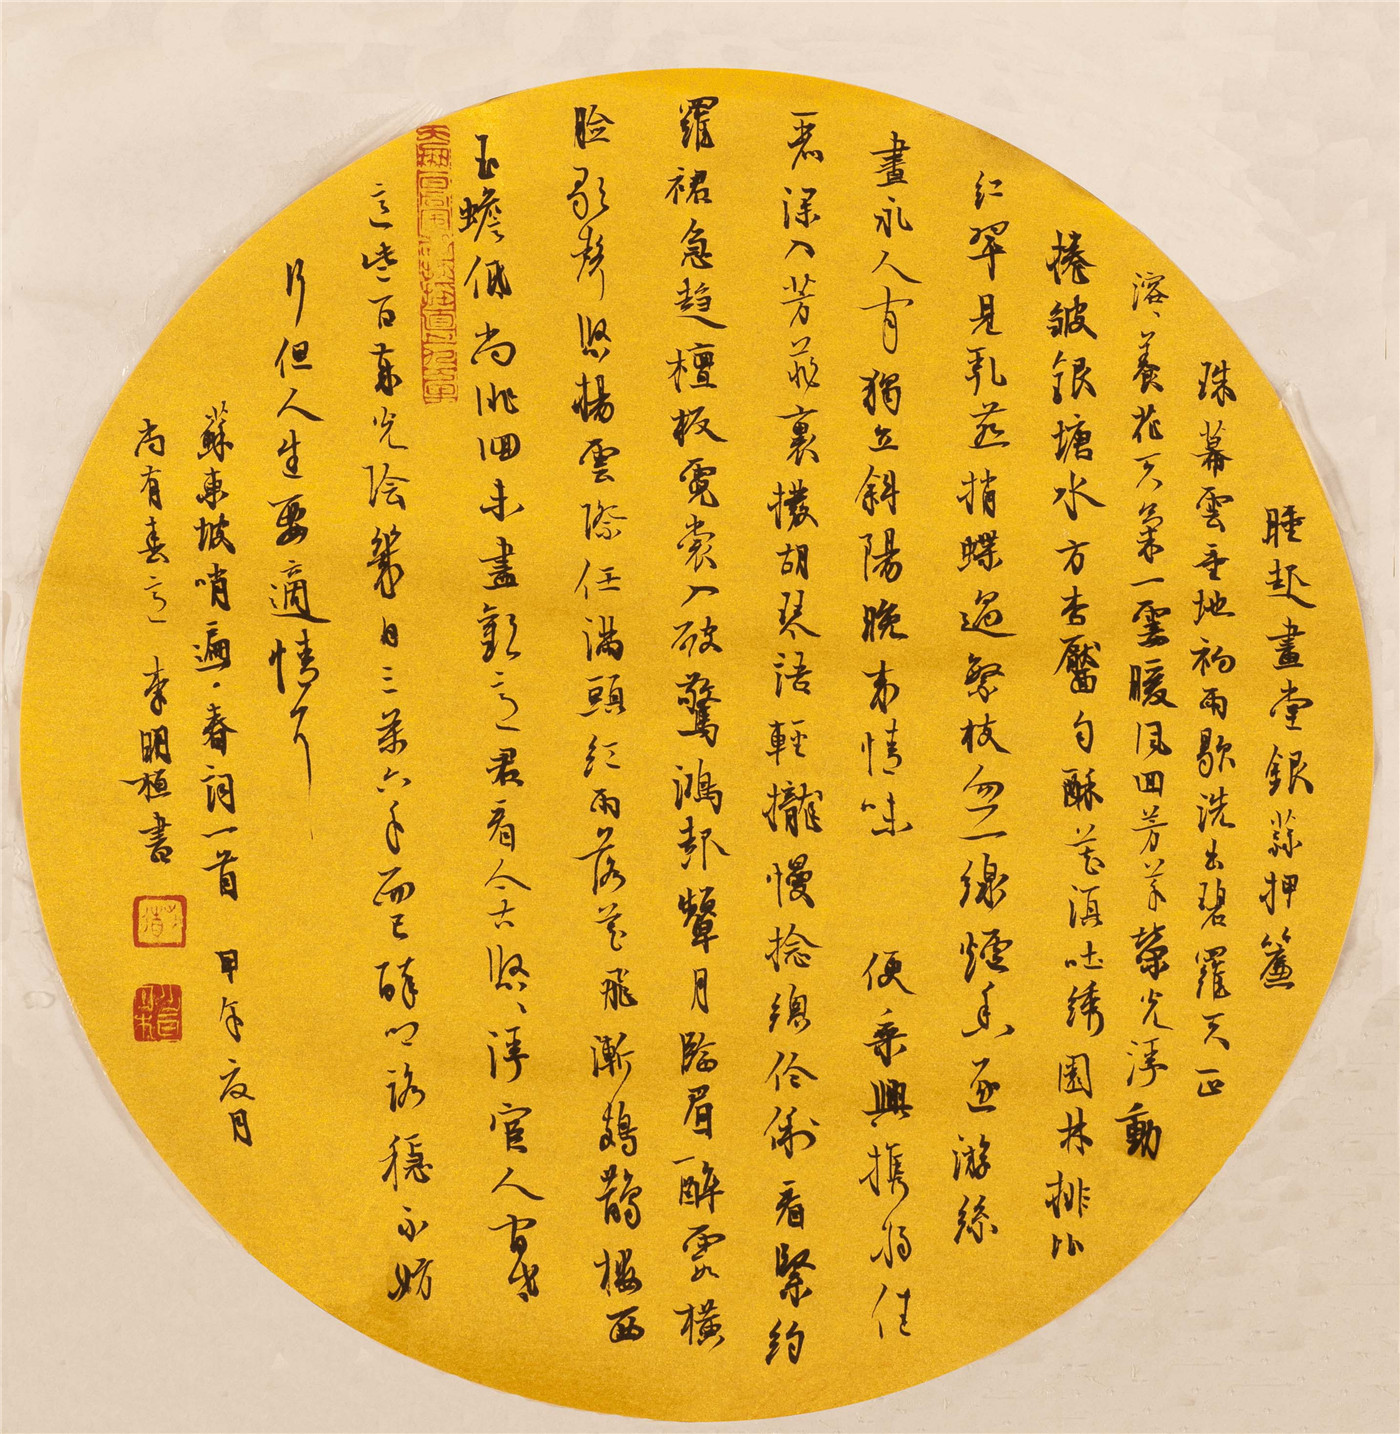 睡起畫堂銀蒜押簾
珠幕雲垂地初雨歇洗出碧羅天正
溶溶養花天氣一霎暖風回芳草榮光浮動
捲皺銀塘水方杏靨勻酥花須吐綉園林排比
紅翠見乳燕捎蝶過繁枝忽一線爐香逐游絲
晝永人間獨立斜陽晚來情味 便乘興携將佳
麗深入芳菲裏撥胡琴語輕攏慢捻總伶俐看緊約
羅裙急趨檀板霓裳入破驚鴻起顰月臨眉醉霞橫
臉歌聲悠揚雲際任滿頭紅雨落花飛漸鳷鵲樓西
玉蟾低尚徘徊未盡歡意君看今古悠悠浮宦人間世
這些百歲光陰幾日三萬六千而已醉鄉路穩不妨
行但人生要適情耳
蘇東坡哨遍·春詞一首 甲午夏月
尚有春意 李明桓書